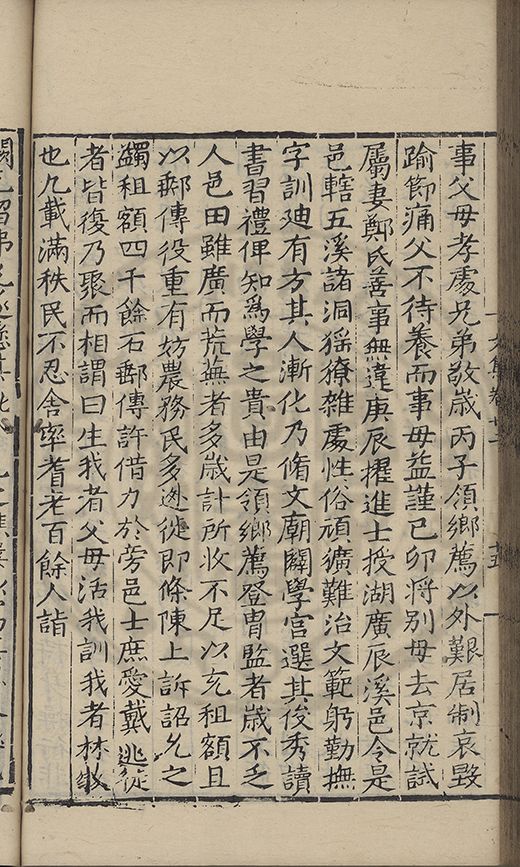 事父母孝處兄弟敬歳丙子領鄉薦以外艱居制哀毀
踰節痛父不待養而事母益謹已卯将别母去京就試
屬妻鄭氏善事無違庚辰擢進士授湖廣辰溪邑令是
邑轄五溪諸洞猺獠雜處性俗頑獷難治文範躬勤撫
字訓廸有方其人漸化乃脩文廟闢學官選其俊秀讀
書習禮俾知爲學之貴由是領鄉薦登胄監者歳不乏
人邑田雖廣而荒蕪者多歳計所收不足以充租額且
以郵傳役重有妨農務民多逊徙即條陳上訴詔允之
蠲租額四千餘石郵傳許借力於旁邑士庶愛戴逃徙
者皆復乃聚而相謂曰生我者父母活我訓我者林
也九載滿秩民不忍舍率耆老百餘人詣